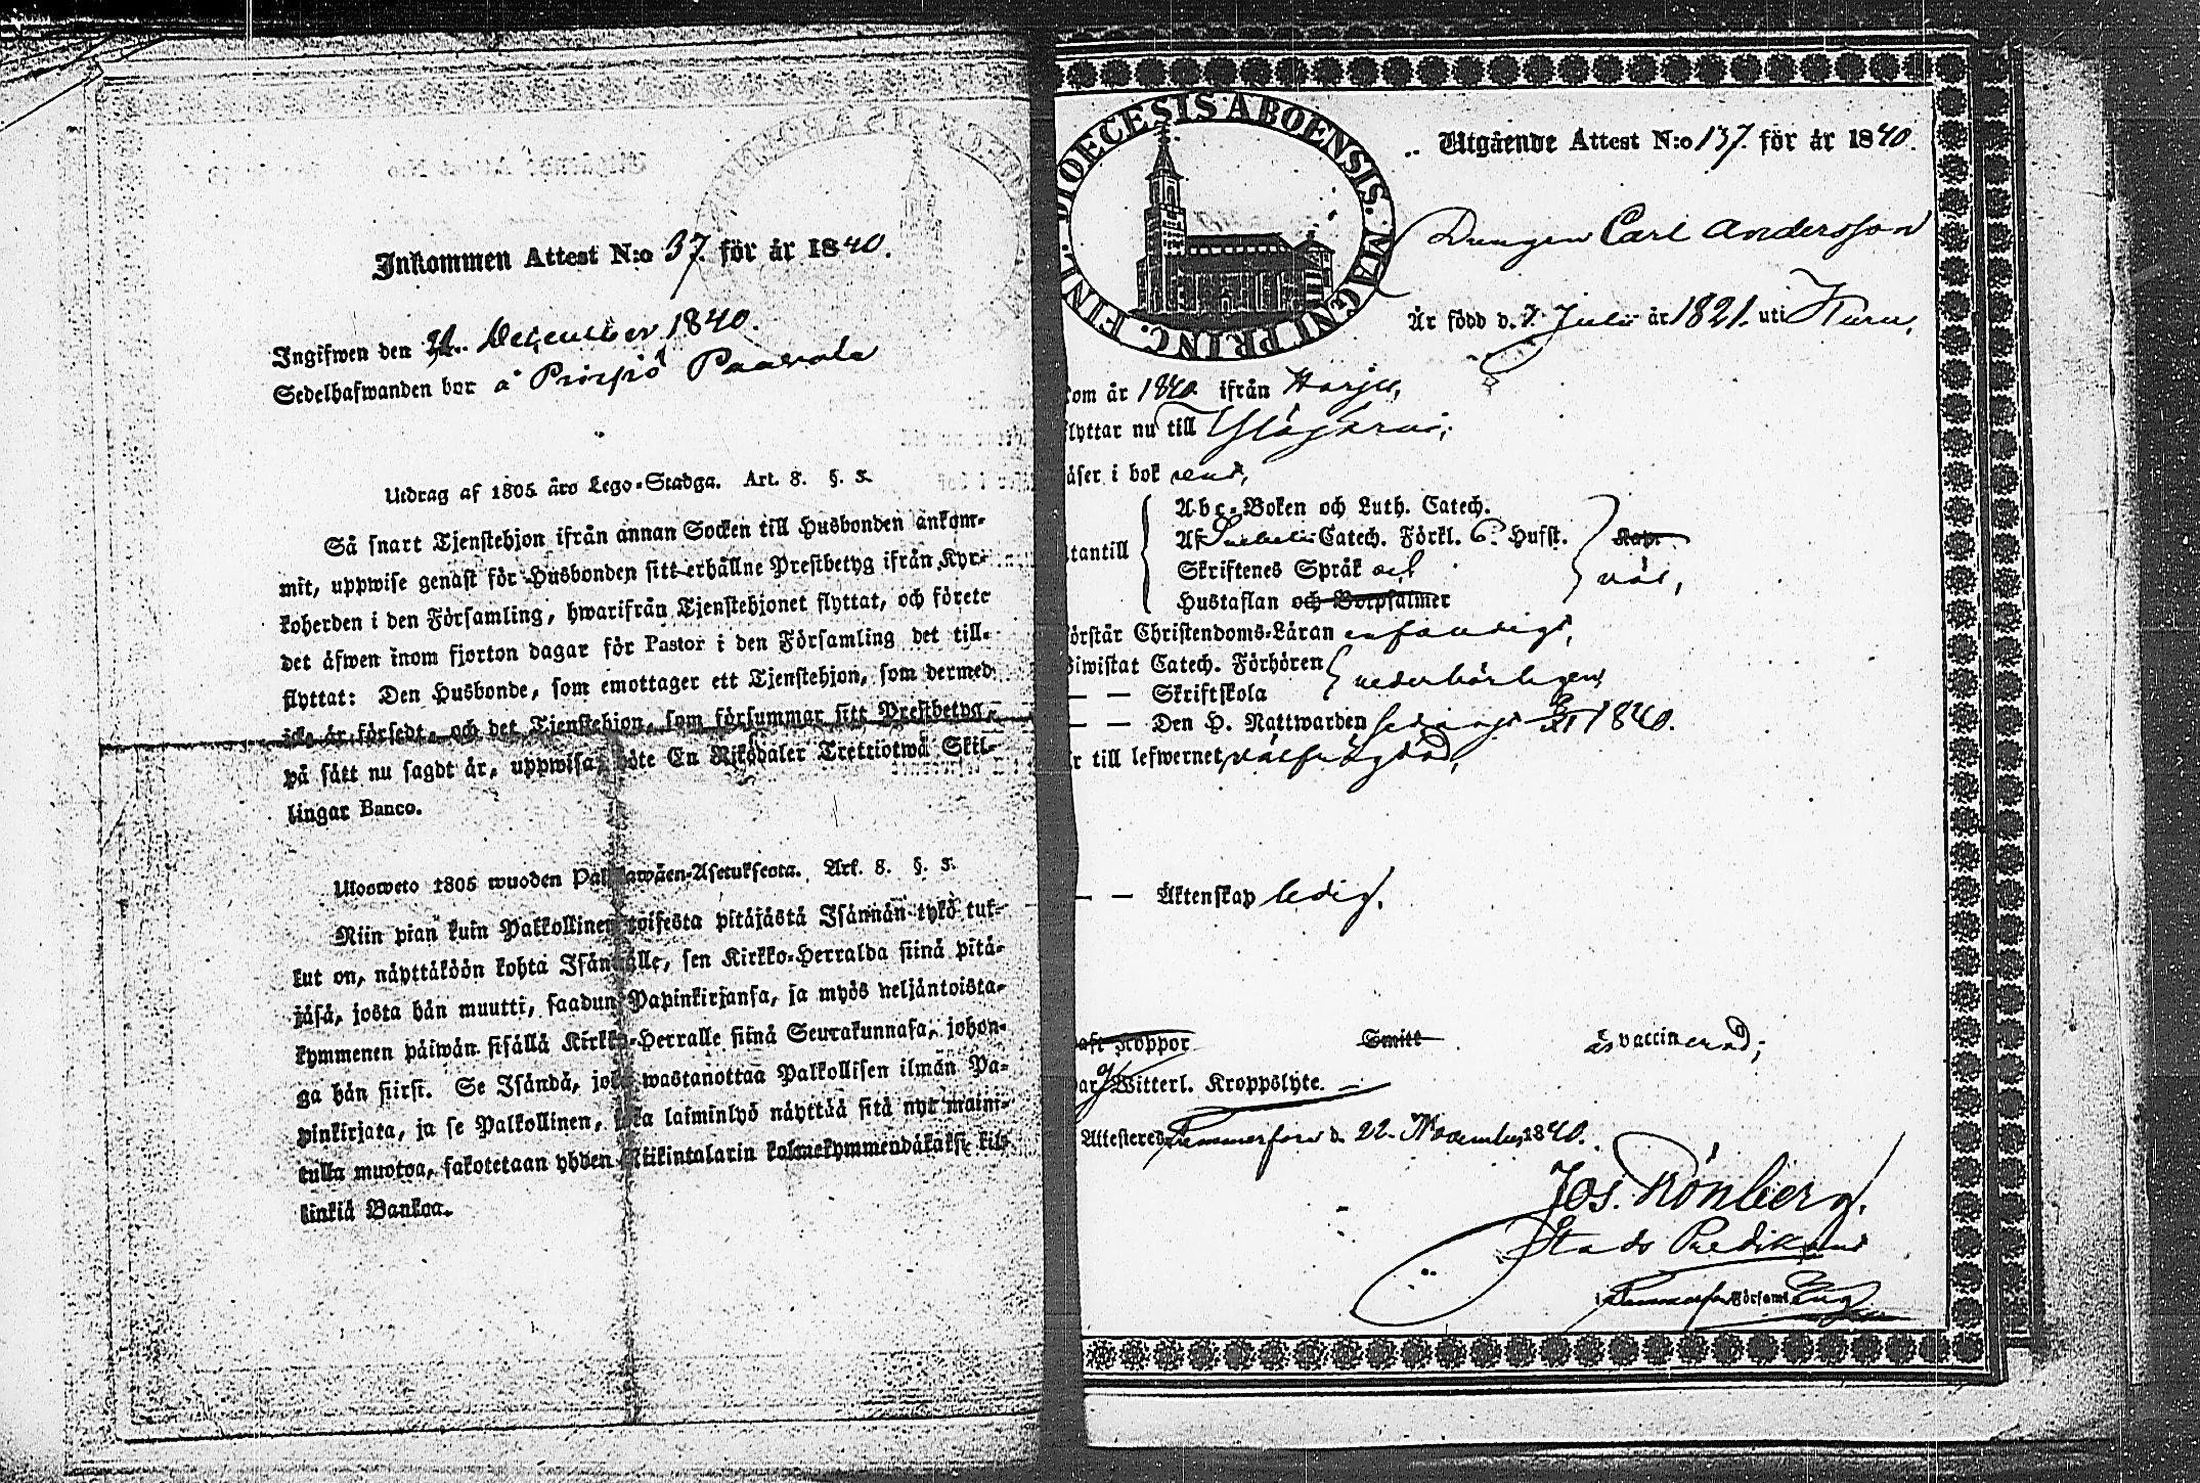 Inkommen Attest N:o 37. för år 1840.
Ingifwen den 21. December 1840.
Sedelhafwanden bor å Prisjrö Paavola
Utdrag af 1805 års Lego-Stadga. Art. 8. §. 5.
Så snart Tjenstehjon ifrån annan Socken till Husbonden ankom-
mit, uppwise genast för Husbonden sitt erhållne Prestbetyg ifrån Kyr-
koherden i den Församling, hwarifrån Tjenstehjonet flyttat, och förete
det åfwen inom fjorton dagar för Pastor i den Församling det till-
flyttat: Den Husbonde, som emottager ett Tjenstehjon, som dermed
icke år försedt, och det Tjenstehjon, som försummar sitt Prestbetyg
på sått nu sagdt år, uppwisa, bôte En Riksdaler Trettiotwå Skil-
lingar Banco.
Ulosweto 1805 wuoden Palkkawäen-Asetuksesta. Art. 8. §. 5.
Niin pian kuin Palkollinen toisesta pitåjåstå Isånnån tykö tul-
lut on, nåyttåköön kohta Isånnålle, sen Kirkko-Herralda siinå pitå-
jåså, josta hån muutti, saadun Papinkirjansa, ja myös neljåntoista-
kymmenen påiwån sisållå Kirkko-Herralle siinå Seurakunnasa, johon-
ga hån siirsi. Se Isåndå, joka wastanottaa Palkollisen ilmån Pa-
pinkirjata, ja se Palkollinen, joka laiminlyö nåyttåå sitå nyt maini-
tulla muotoa, sakotetaan yhden Riikintalarin kolmekymmendåkaksi kil-
linkiå Bankoa.
FINL. DIOECESIS ABOENSIS. MAGNI PRINC.
Utgående Attest N:o 137. för år 1840.
Drengen Carl Andersson
År född d. 7. Julii år 1821. uti Kuru,
kom år 1840. ifrån Harju,
flyttar nu till Ylöjärvi,
låser i bok rent,
Abc-Boken och Luth. Catech.
Af Svebelii Catech. Förkl. 6. Hufst.
utantill
Skriftenes Språk och
väl,
Hustaflan och Botpsalmer
förstår Christendoms-Låran enfaldigt,
Biwistat Catech. Förhören
— — Skriftskola
vederbörligen,
— — Den H. Nattwarden 1840.
år till lefwernet välfrägdad,
— — Åktenskap ledig.
haft Koppor
Smitt
är vaccinerad;
har Witterl. Kroppslyte. —
Attesterer Tammerfors d. 22. November 1840.
Jos. Grönberg.
Stads Predikant
i Tammerfors Församling